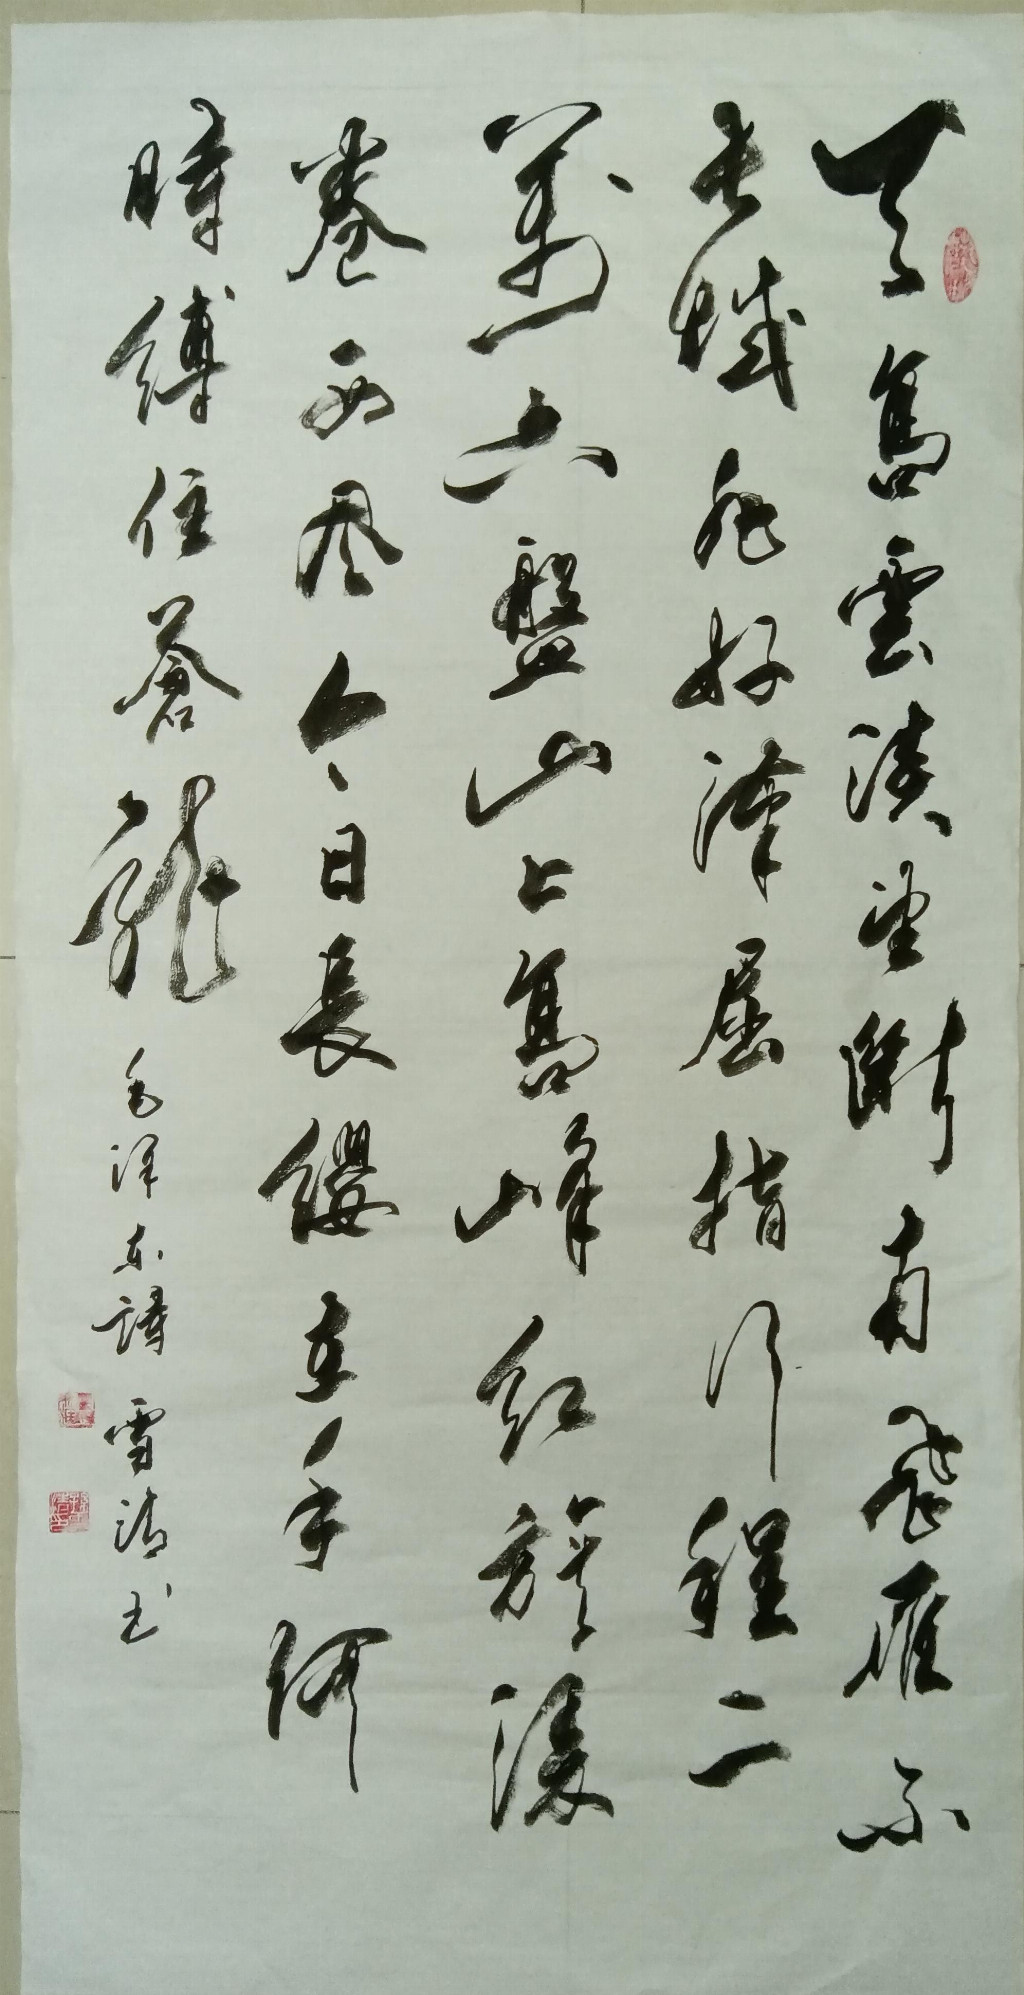 天高雲淡望斷南飛雁不
长城非好漢屈指行程二
萬六盤山上高峰紅旗漫
卷西風今日長纓在手何
時縛住蒼龍
毛泽东詩 雪清书